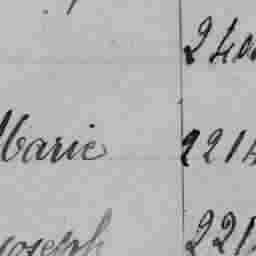 240
Marie 2214
Joseph 221